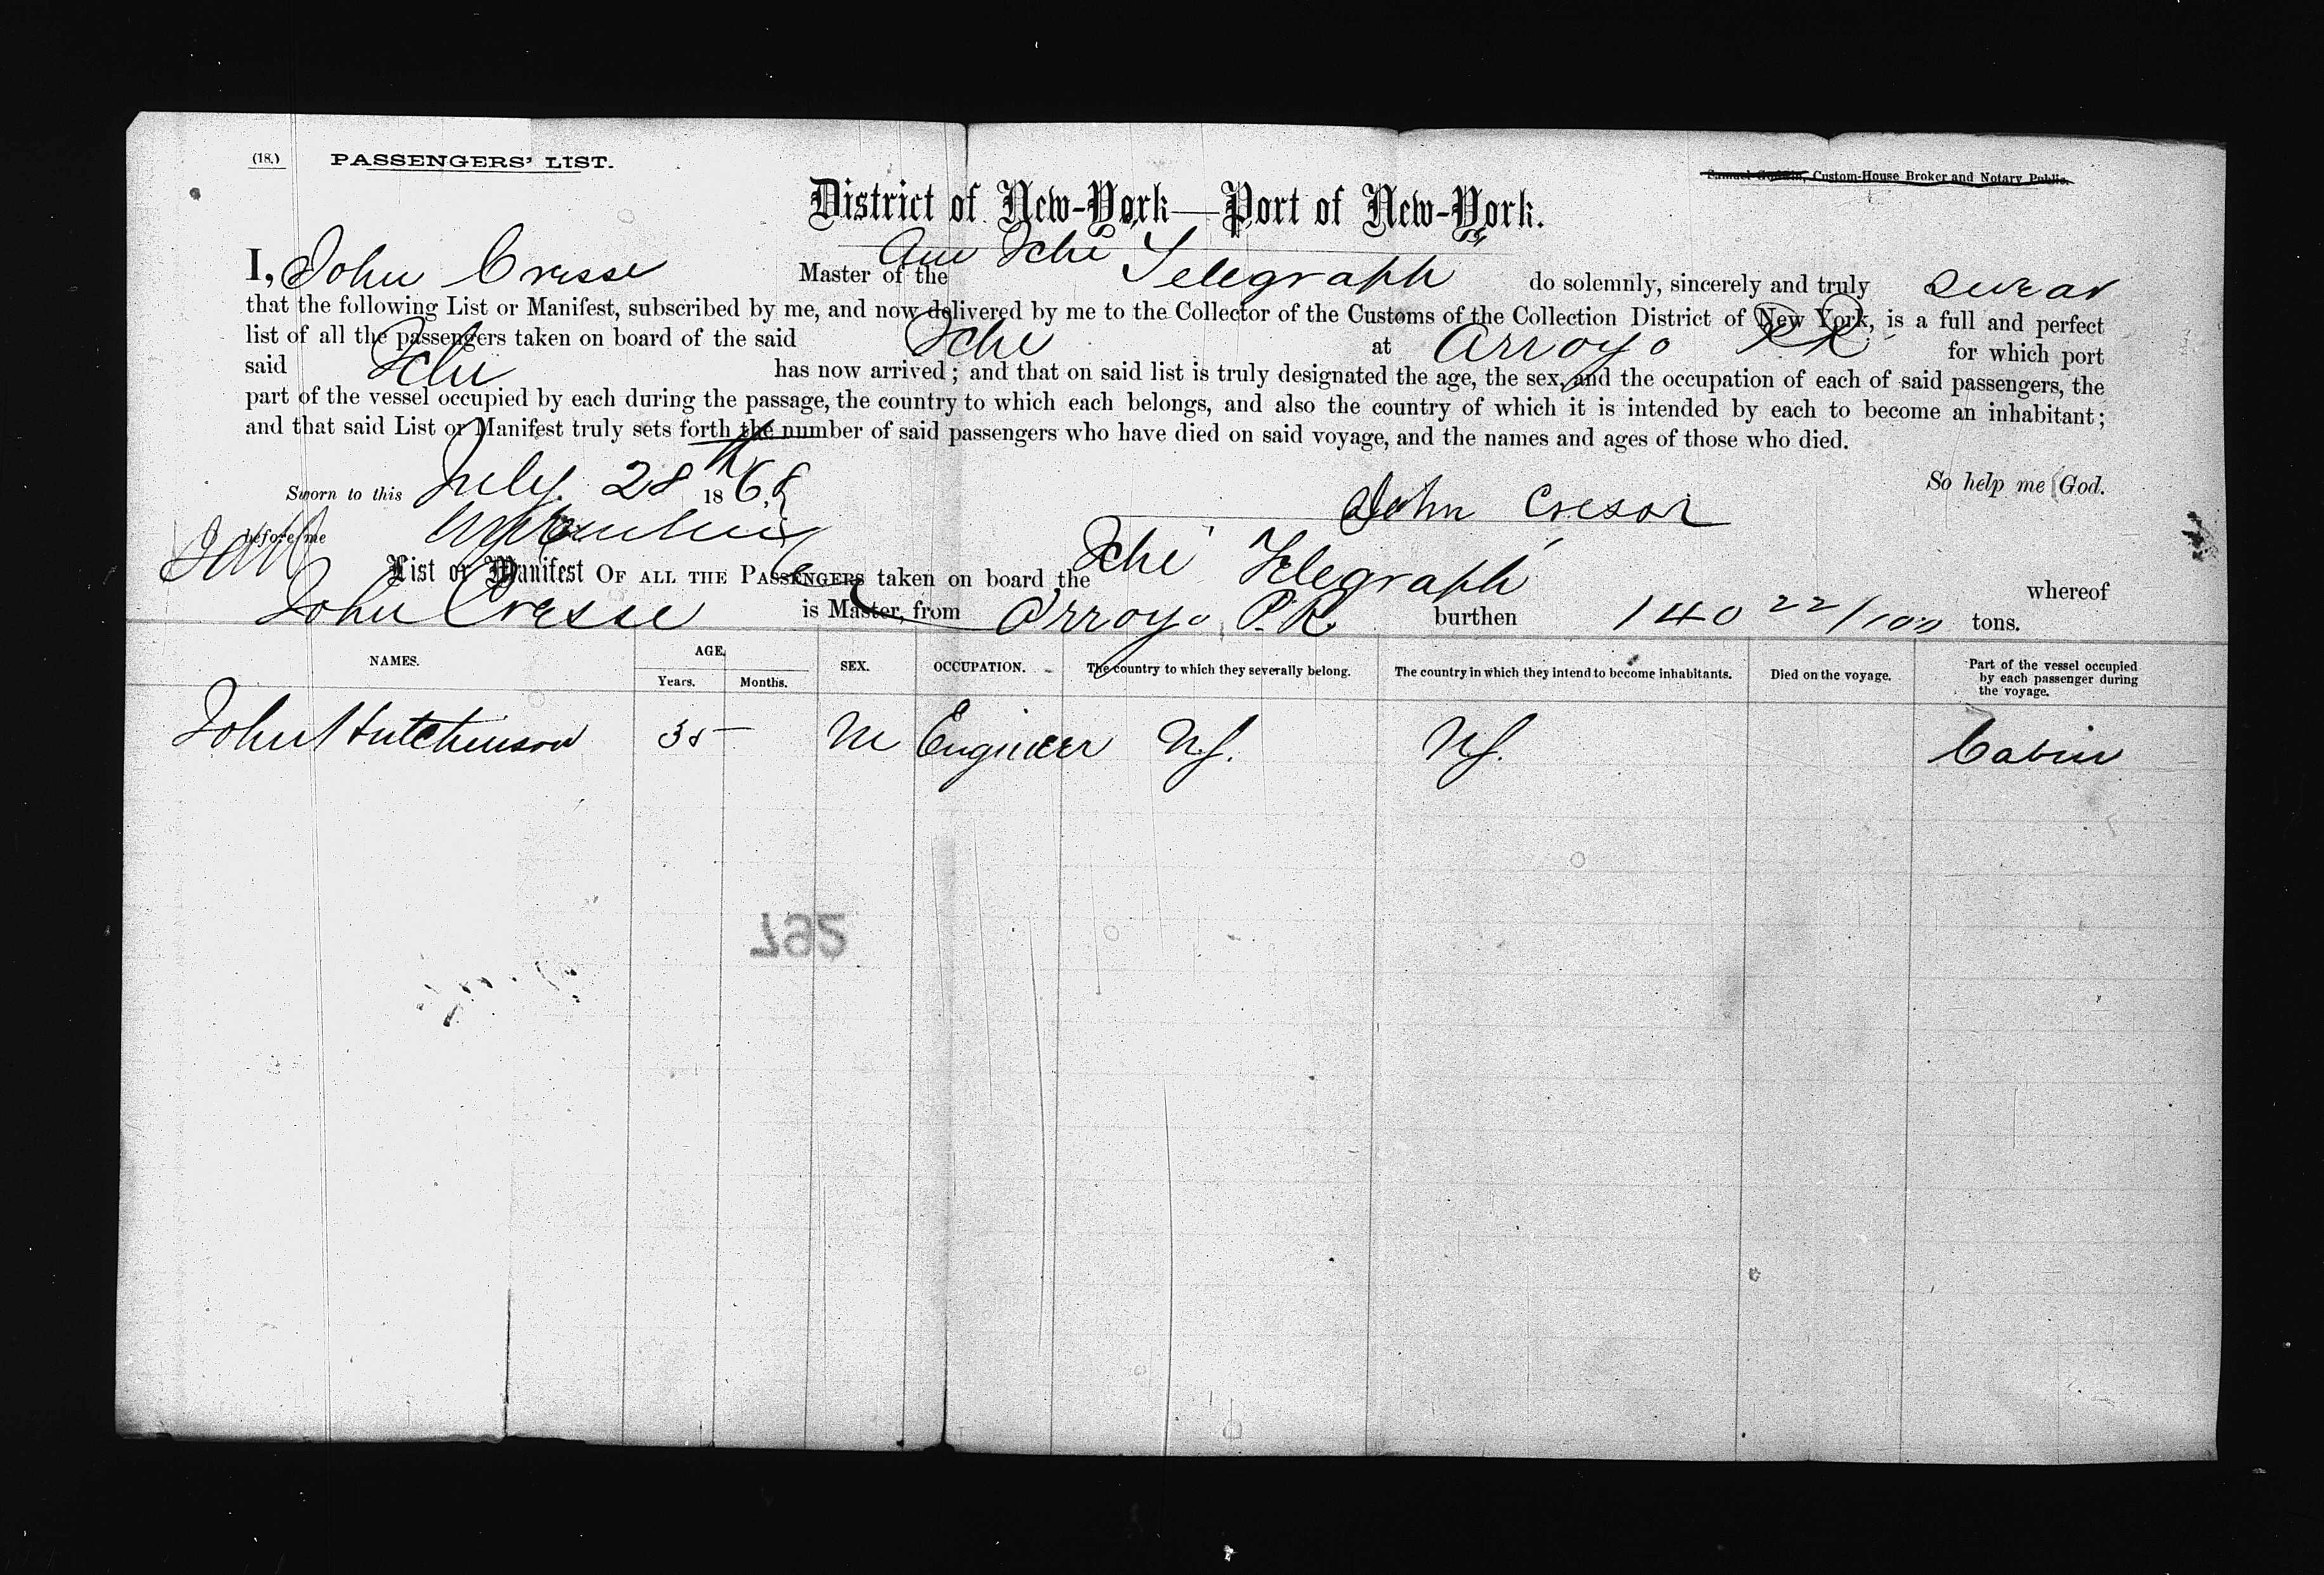 (18.) PASSENGERS' LIST.
Custom-House Broker and Notary Public.
District of New-York—Port of New-York.
I, John Cresse Master of the Am Schr Telegraph do solemnly, sincerely and truly swear
that the following List or Manifest, subscribed by me, and now delivered by me to the Collector of the Customs of the Collection District of New York, is a full and perfect
list of all the passengers taken on board of the said Schr at Arroyo P.R. for which port
said Schr has now arrived; and that on said list is truly designated the age, the sex, and the occupation of each of said passengers, the
part of the vessel occupied by each during the passage, the country to which each belongs, and also the country of which it is intended by each to become an inhabitant;
and that said List or Manifest truly sets forth the number of said passengers who have died on said voyage, and the names and ages of those who died.
So help me God.
Sworn to this July 28th 1868
John Cresse
before me
List or Manifest OF ALL THE PASSENGERS taken on board the Schr Telegraph whereof
John Cresse is Master, from Arroyo P.R. burthen 140 22/100 tons.
NAMES. AGE. SEX. OCCUPATION. The country to which they severally belong. The country in which they intend to become inhabitants. Died on the voyage. Part of the vessel occupied by each passenger during the voyage.
Years. Months.
John Hutchinson 35 M Engineer U.S. U.S. Cabin
792